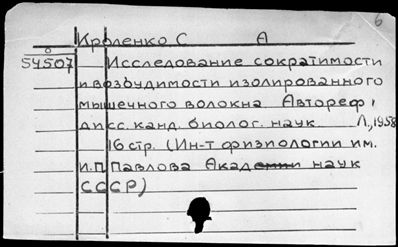 6
Кроленко С А
54507 Исследование сократимости
и возбудимости изолированного
мышечного волокна Автореф.
дисс. канд. биолог. наук Л, 1958
16 стр. (Ин-т физиологии им.
И.П Павлова Академии наук
СССР)